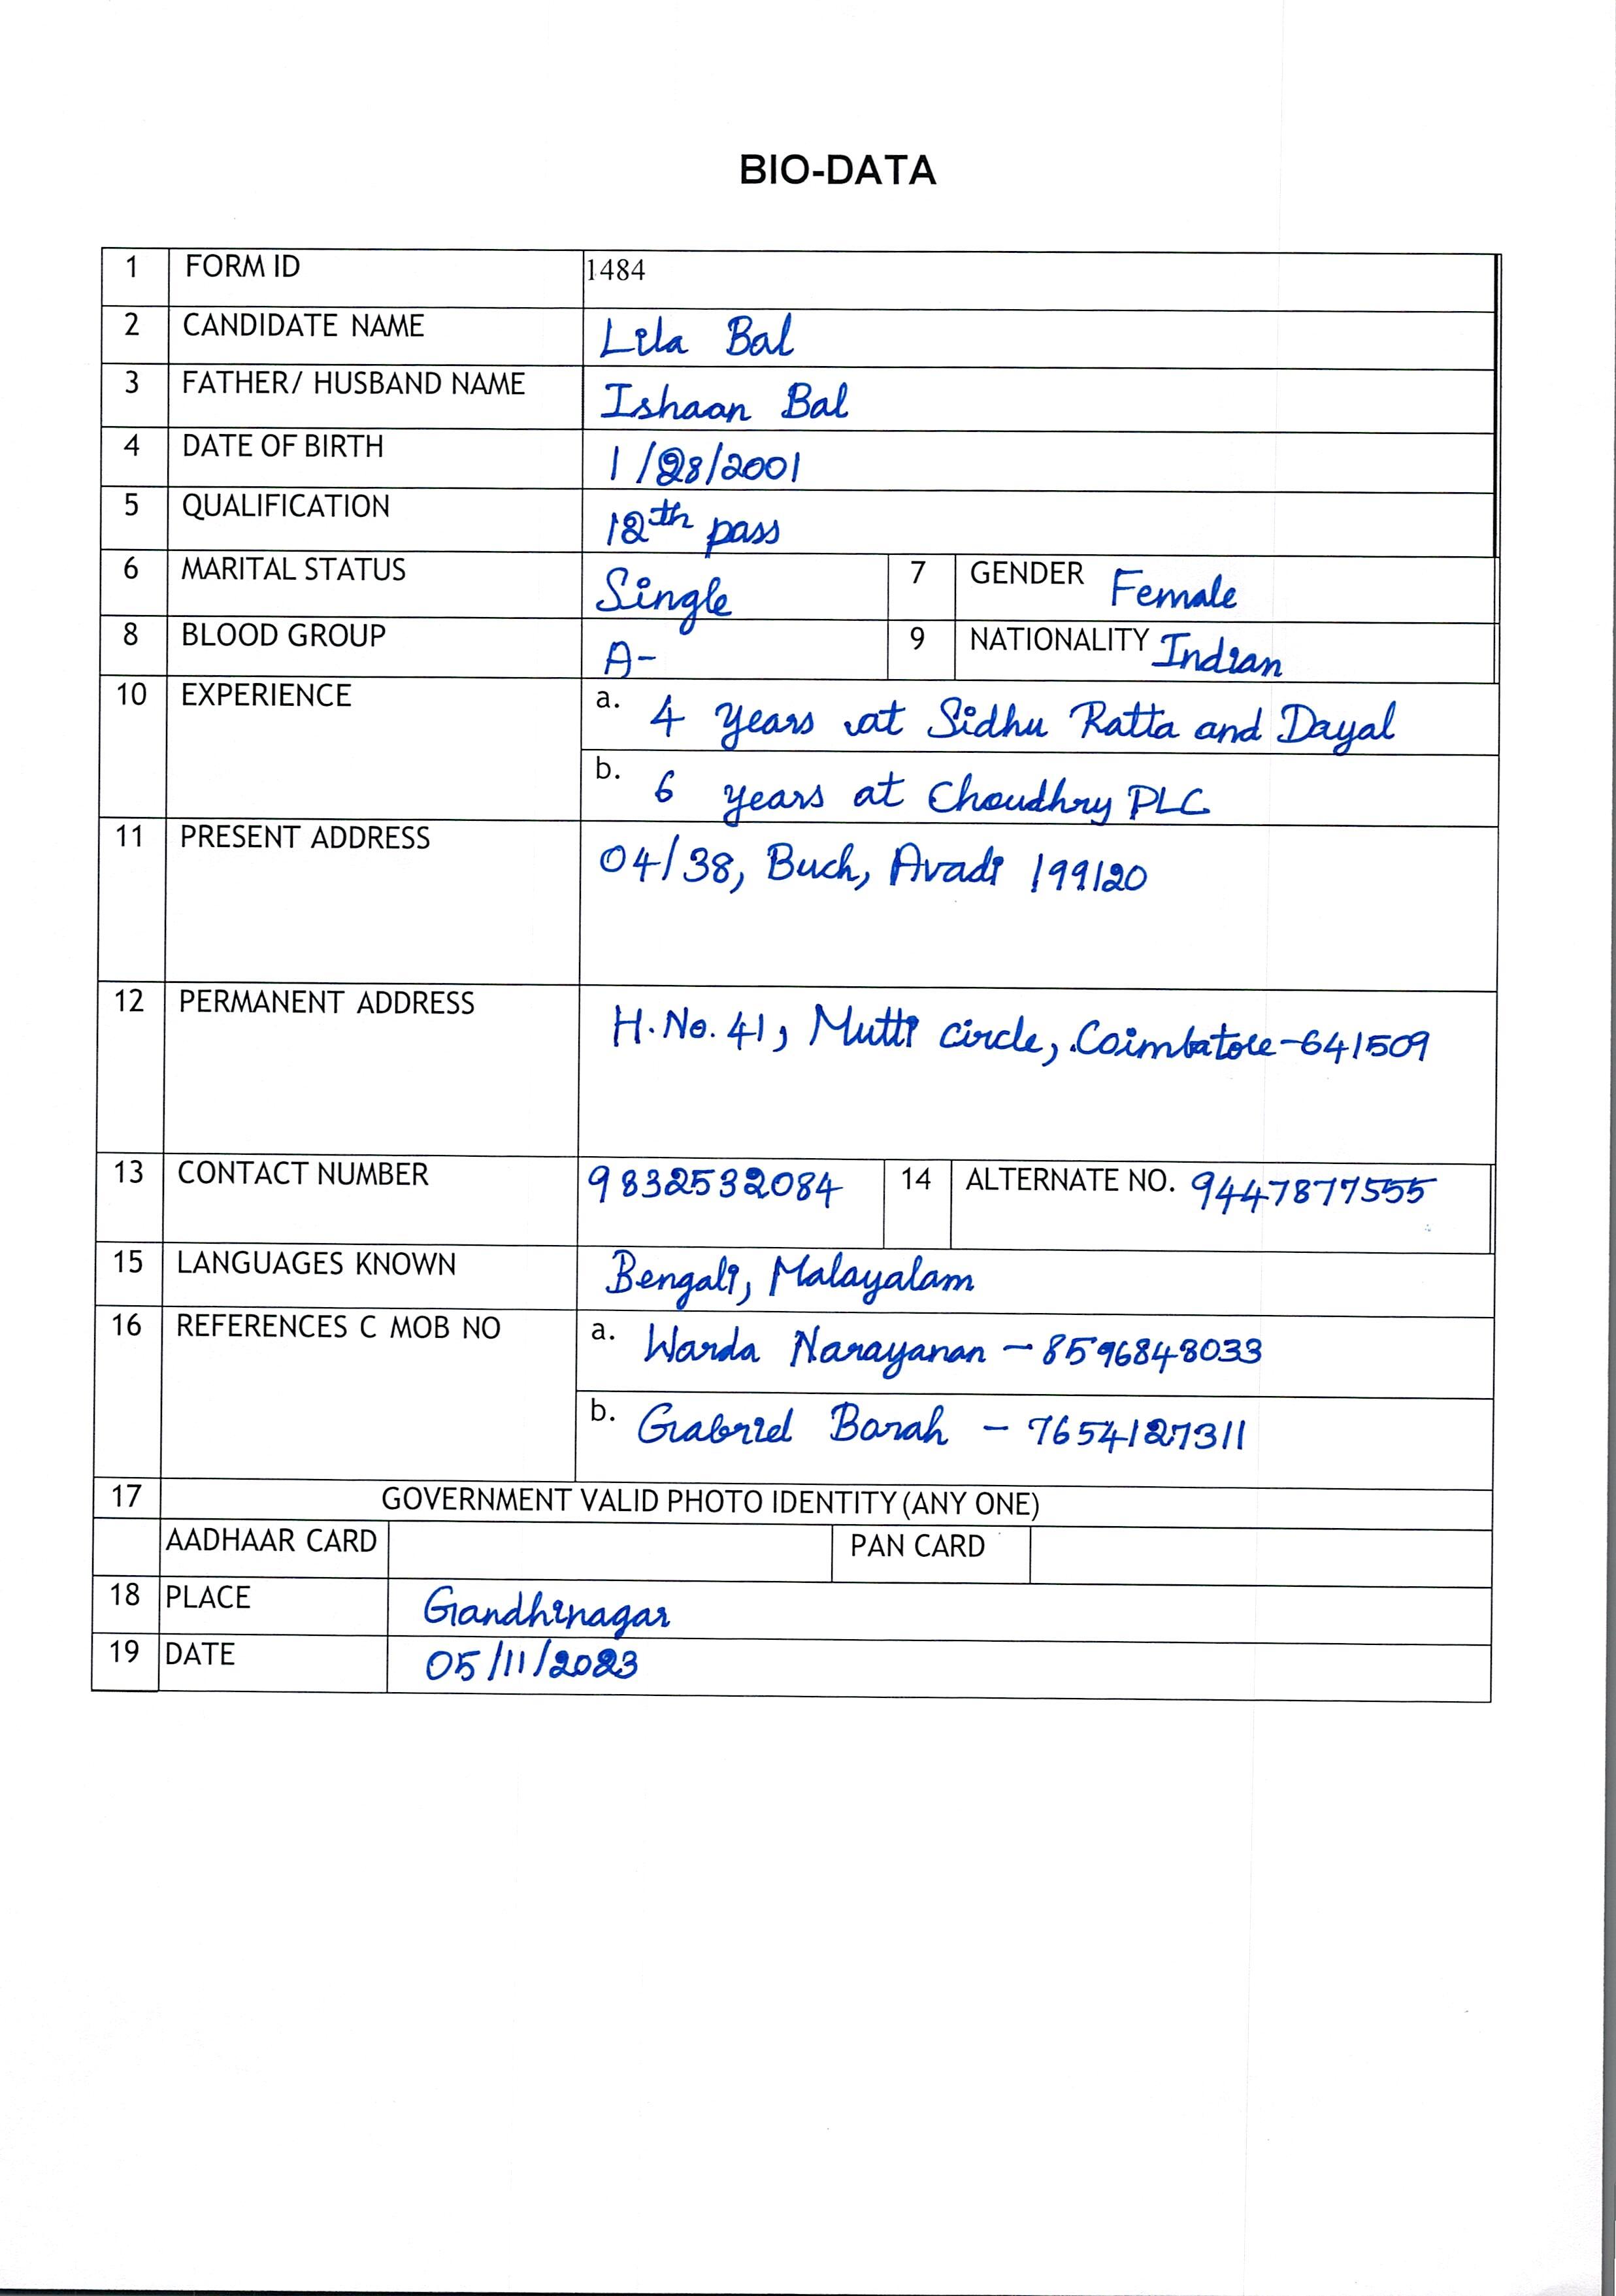 BIO-DATA
1 FORM ID 1484
2 CANDIDATE NAME Lila Bal
3 FATHER/ HUSBAND NAME Ishaan Bal
4 DATE OF BIRTH 1/28/2001
5 QUALIFICATION 12th pass
6 MARITAL STATUS Single 7 GENDER Female
8 BLOOD GROUP A- 9 NATIONALITY Indian
10 EXPERIENCE a. 4 years at Sidhu Ratta and Dayal
b. 6 years at Choudhry PLC
11 PRESENT ADDRESS 04/38, Buch, Avadi 199120
12 PERMANENT ADDRESS H.No. 41, Mutti circle, Coimbatore-641509
13 CONTACT NUMBER 9832532084 14 ALTERNATE NO. 9447877555
15 LANGUAGES KNOWN Bengali, Malayalam
16 REFERENCES C MOB NO a. Warda Narayanan - 8596843033
b. Gabriel Borah - 7654127311
17 GOVERNMENT VALID PHOTO IDENTITY (ANY ONE)
AADHAAR CARD PAN CARD
18 PLACE Gandhinagar
19 DATE 05/11/2023